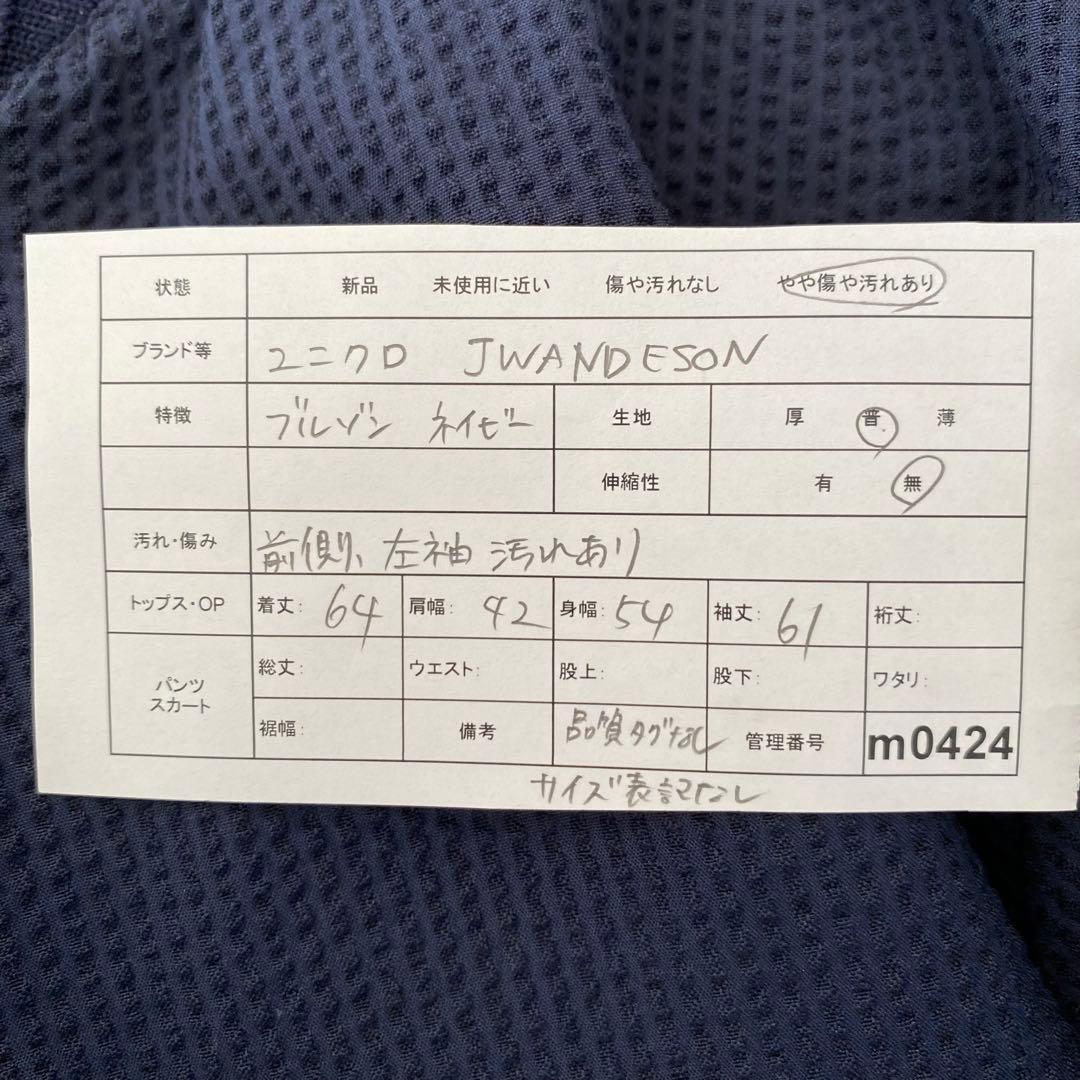 状態 新品 未使用に近い 傷や汚れなし やや傷や汚れあり
ブランド等 ユニクロ JWANDESON
特徴 ブルゾン ネイビー 生地 厚 普 薄
伸縮性 有 無
汚れ・傷み 前側、左袖 汚れあり
トップス・OP 着丈: 64 肩幅: 42 身幅: 54 袖丈: 61 裄丈:
パンツ スカート 総丈: ウエスト: 股上: 股下: ワタリ:
裾幅: 備考 品質タグなし 管理番号 m0424
サイズ表記なし